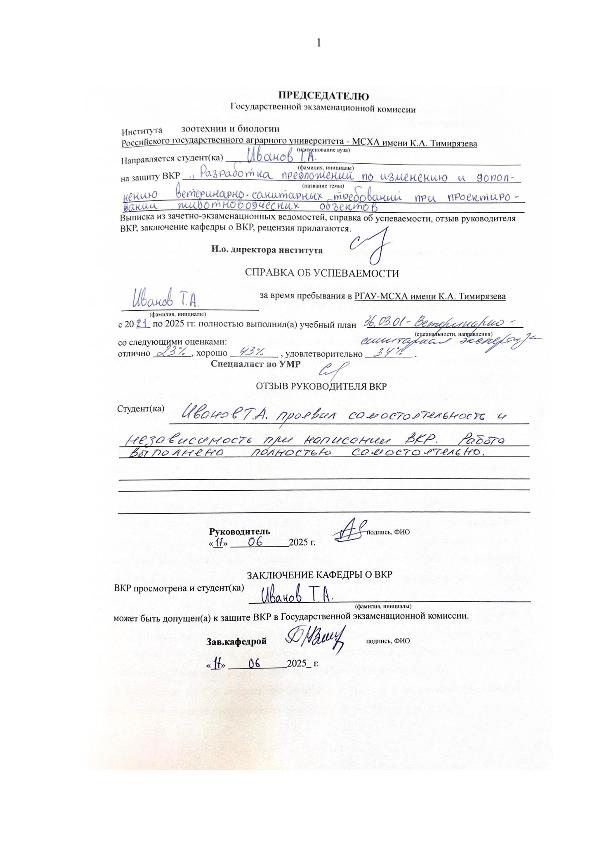 1
ПРЕДСЕДАТЕЛЮ
Государственной экзаменационной комиссии
Института зоотехнии и биологии
Российского государственного аграрного университета - МСХА имени К.А. Тимирязева
(наименование вуза)
Направляется студент(ка) Иванов Т.А.
(фамилия, инициалы)
на защиту ВКР „Разработка предложений по изменению и допол-
(название темы)
нению ветеринарно-санитарных требований при проектиро-
вании животноводческих объектов
Выписка из зачетно-экзаменационных ведомостей, справка об успеваемости, отзыв руководителя
ВКР, заключение кафедры о ВКР, рецензия прилагаются.
И.о. директора института
СПРАВКА ОБ УСПЕВАЕМОСТИ
Иванов Т.А. за время пребывания в РГАУ-МСХА имени К.А. Тимирязева
(фамилия, инициалы)
с 2021 по 2025 гг. полностью выполнил(а) учебный план 36.03.01 - Ветеринарно-
(специальности, направления)
со следующими оценками: санитарная экспертиза
отлично 23% , хорошо 43% , удовлетворительно 34% .
Специалист по УМР
ОТЗЫВ РУКОВОДИТЕЛЯ ВКР
Студент(ка) Иванов Т.А. проявил самостоятельность и
независимость при написании ВКР. Работа
выполнена полностью самостоятельно.
Руководитель подпись, ФИО
«11» 06 2025 г.
ЗАКЛЮЧЕНИЕ КАФЕДРЫ О ВКР
ВКР просмотрена и студент(ка) Иванов Т.А.
(фамилия, инициалы)
может быть допущен(а) к защите ВКР в Государственной экзаменационной комиссии.
Зав.кафедрой подпись, ФИО
«11» 06 2025_ г.